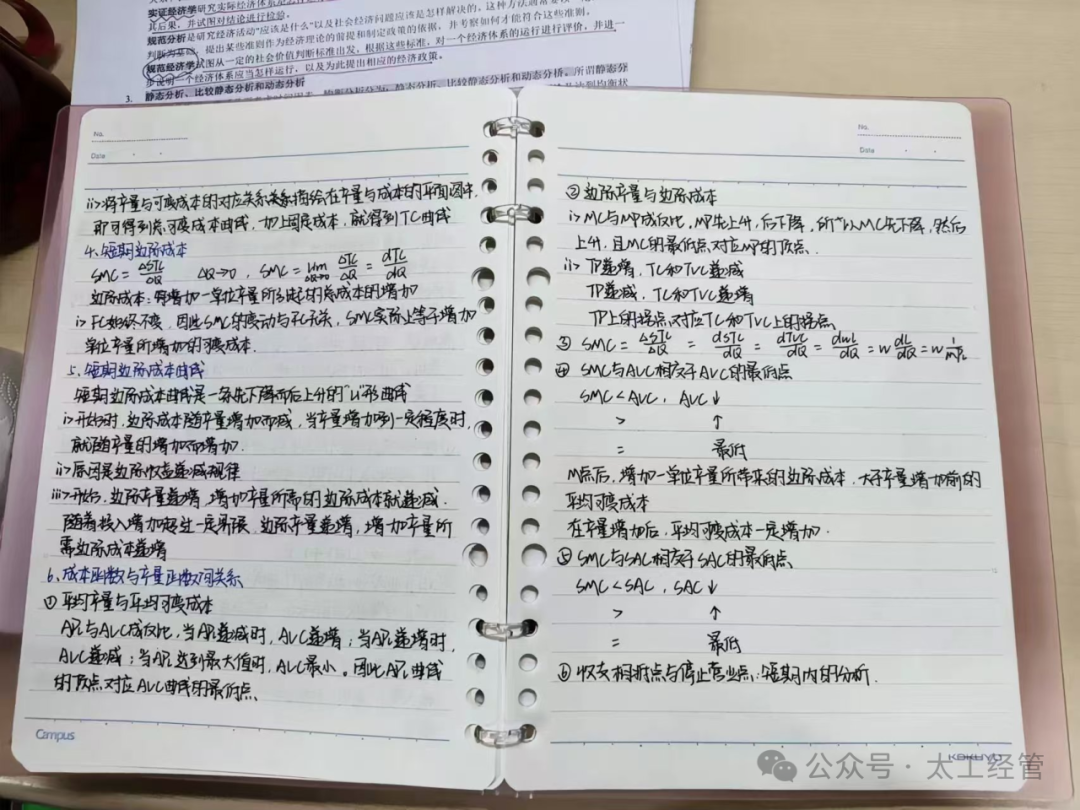 实证经济学研究实际经济体系是怎样
其后果，并试图对结论进行检验。
规范分析是研究经济活动“应该是什么”以及社会经济问题应该是怎样解决的。这种方法通常要
判断为基础，提出某些准则作为经济理论的前提和制定政策的依据，并考察如何才能符合这些准则。
规范经济学试图从一定的社会价值判断标准出发，根据这些标准，对一个经济体系的运行进行评价，并进一
步说明一个经济体系应当怎样运行，以及为此提出相应的经济政策。
3. 静态分析、比较静态分析和动态分析
静态分析、比较静态分析和动态分析。所谓静态分
No.
Date
ii>将产量与可变成本的对应关系关系描绘在产量与成本的平面图中，
即可得到总可变成本曲线，加上固定成本，就得到TC曲线
4、短期边际成本
SMC = ΔSTC/ΔQ ΔQ→0，SMC = lim ΔQ→0 ΔTC/ΔQ = dTC/dQ
边际成本：每增加一单位产量所引起的总成本的增加
i> FC始终不变，因此SMC的变动与FC无关，SMC实际上等于增加
单位产量所增加的可变成本．
5、短期边际成本曲线
短期边际成本曲线是一条先下降而后上升的“U”形曲线
i>开始时，边际成本随产量增加而减，当产量增加到一定程度时，
就随产量的增加而增加．
ii>原因是边际收益递减规律
iii>开始，边际产量递增，增加产量所需的边际成本就递减．
随着投入增加超过一定界限，边际产量递增，增加产量所
需边际成本递增
6、成本函数与产量函数间关系
① 平均产量与平均可变成本
APL与AVC成反比，当APL递减时，AVC递增；当APL递增时，
AVC递减；当APL达到最大值时，AVC最小。因此APL曲线
的顶点对应AVC曲线的最低点
Campus
No.
Date
② 边际产量与边际成本
i> MC与MP成反比，MP先上升，后下降，所以MC先下降，然后
上升，且MC的最低点对应MP的顶点．
ii> TP递增，TC和TVC递减
TP递减，TC和TVC递增
TP上的拐点对应TC和TVC上的拐点
③ SMC = ΔSTC/ΔQ = dSTC/dQ = dTVC/dQ = dwL/dQ = w dL/dQ = w 1/MPL
④ SMC与AVC相交于AVC的最低点
SMC < AVC，AVC↓
> ↑
= 最低
M点后，增加一单位产量所带来的边际成本，大于产量增加前的
平均可变成本
在产量增加后，平均可变成本一定增加．
⑤ SMC与SAC相交于SAC的最低点
SMC < SAC，SAC↓
> ↑
= 最低
⑥ 收支相抵点与停止营业点：短期内的分析．
KOKUYO
公众号 · 太工经管